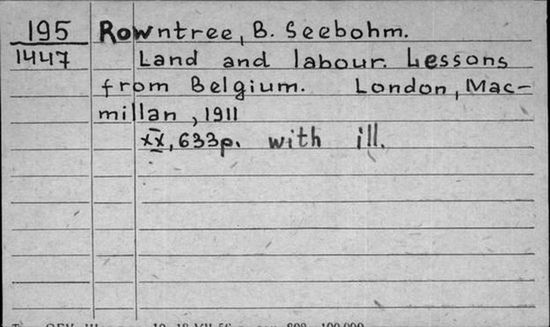 195 Rowntree, B. Seebohm.
1447 Land and labour. Lessons
from Belgium. London, Mac-
millan, 1911
XX, 633p. with ill.